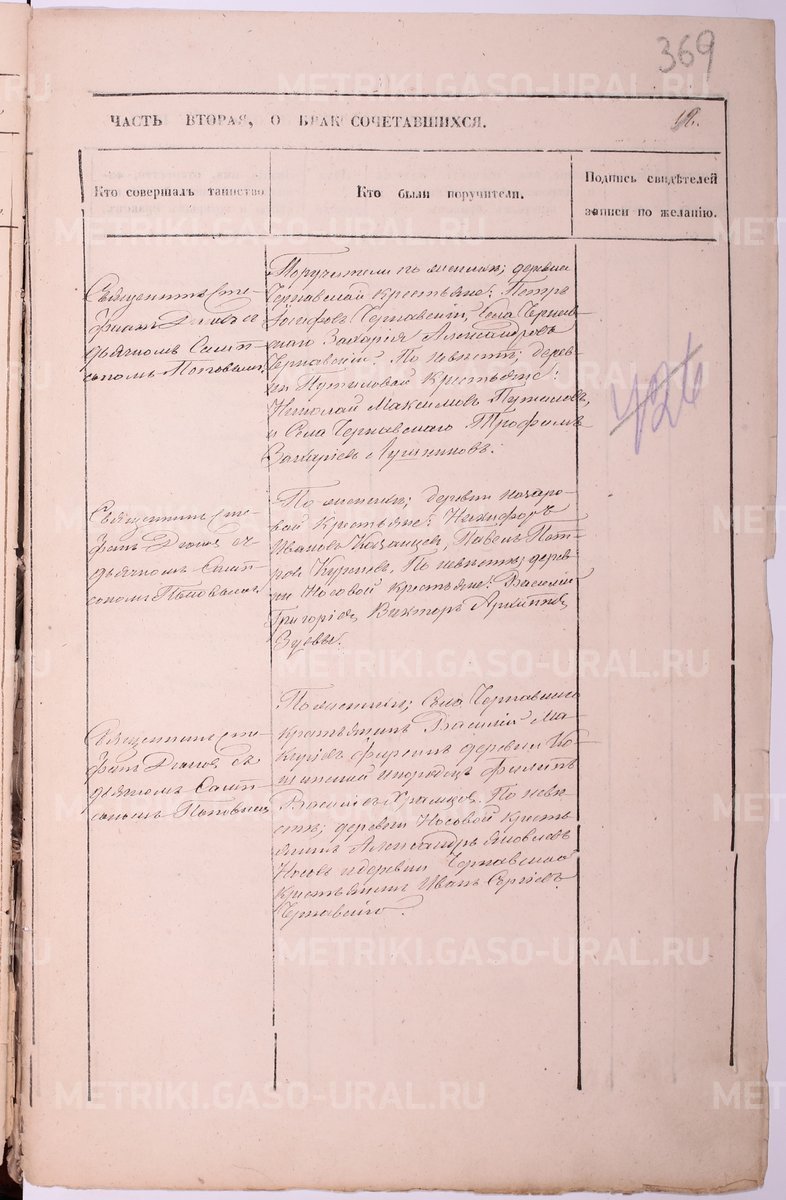 369
ЧАСТЬ ВТОРАЯ, О БРАКОСОЧЕТАВШИХСЯ.
12.
Кто совершалъ таинство
Кто были поручители.
Подпись свидѣтелей
записи по желанію.
Священникъ Сте-
фанъ Діевъ съ
дьячкомъ Самп-
сономъ Поповымъ
Поручители по женихѣ; деревни
Чернавской крестьяне: Петръ
Чернавскій, Села Чернав-
скаго Захарія Александровъ
Чернавскій. По невѣстѣ; дерев-
ни Путиловой Крестьяне:
Николай Максимовъ Путиловъ,
и Села Чернавскаго Трофимъ
Захаріевъ
426
Священникъ Сте-
фанъ съ
дьячкомъ Самп-
сономъ Поповымъ
По женихѣ; деревни
Крестьяне: Никифоръ
Ивановъ Казанцевъ, Павелъ Пет-
ровъ По невѣстѣ; дерев-
ни Носовой Крестьяне: Василій
Григоріевъ, Викторъ
Зуевы.
Священникъ Сте-
фанъ съ
дьячкомъ Самп-
сономъ Поповымъ
По женихѣ; Села Чернавскаго
крестьянинъ Василій Ма-
деревни
Филипъ
Васильевъ По невѣ-
стѣ; деревни Носовой Кресть-
янинъ Александръ Яковлевъ
Носовъ и деревни Чернавской
Крестьянинъ Иванъ Сергіевъ
Чернавскій.
METRIKI.GASO-URAL.RU